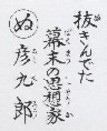 抜きんでた
幕末の思想家
ぬ 彦九郎